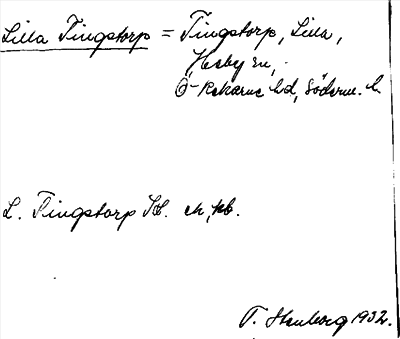 Lilla Tingstorp = Tingstorp, Lilla,
Husby sn,
Ö-Rekarne hd, Söderm. l.
L. Tingstorp Hf. ek, kb.
T. Hamberg 1932.